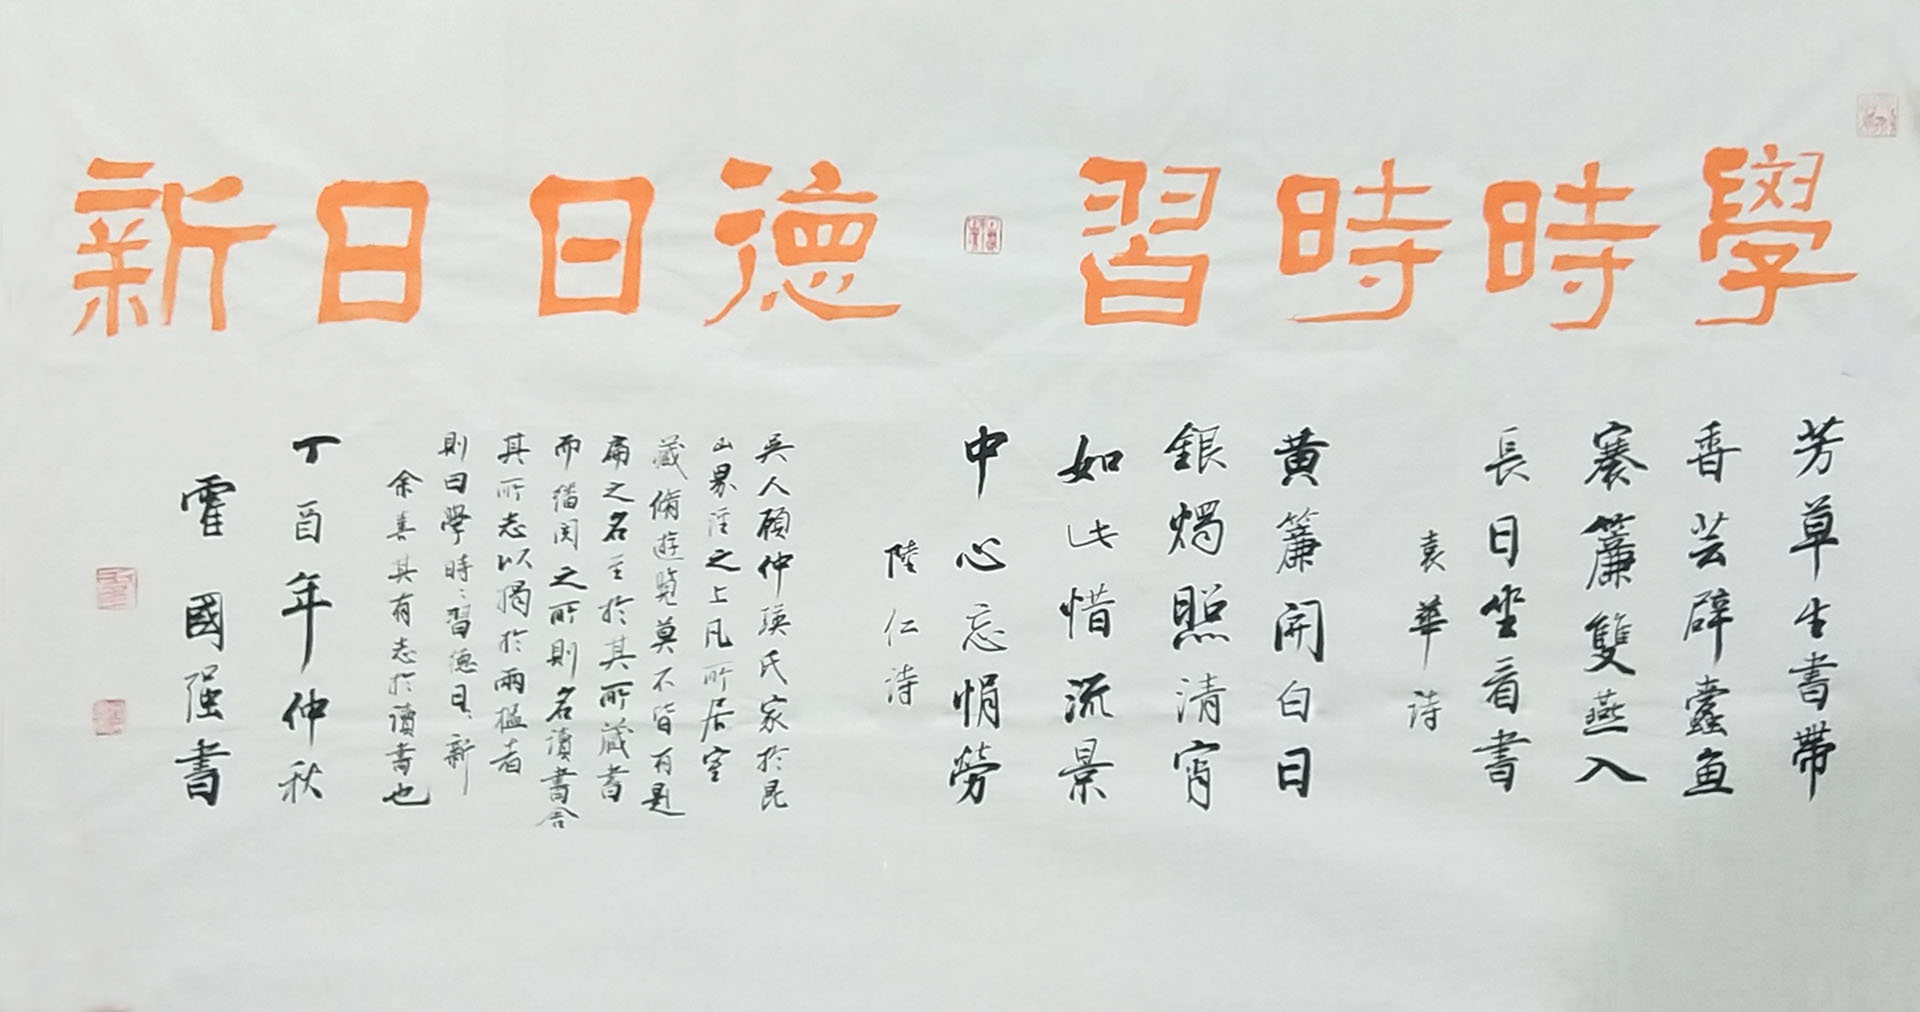 學時時習
德日日新
芳草生書帶
香芸辟蠹魚
褰簾雙燕入
長日坐看書
袁華詩
黄簾開白日
銀燭照清宵
如此惜流景
中心忘悁勞
陸仁詩
吳人顧仲瑛氏家於昆
山界涇之上凡所居室
藏脩遊覽莫不皆有題
扁之名至於其所藏書
而繙閱之所則名讀書舍
其所志以揭於兩楹者
則曰學時〻習德日〻新
余喜其有志於讀書也
丁酉年仲秋
霍國强書